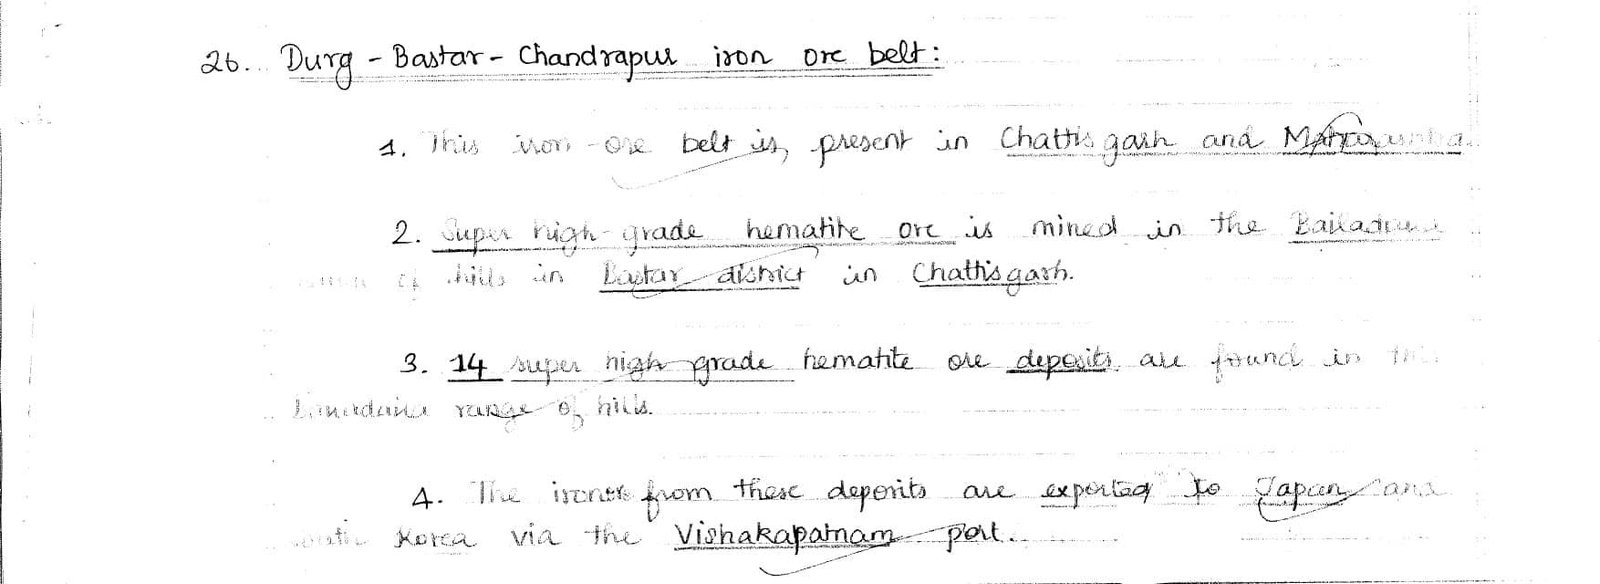 26. Durg - Bastar - Chandrapur iron ore belt:
1. This iron-ore belt is, present in Chattisgarh and Maharashtra
2. Super high-grade hematite ore is mined in the
of hills in Bastar district in Chattisgarh.
3. 14 super high grade hematite ore deposits are found in this
range of hills.
4. The from these deposits are exported to Japan and
south Korea via the Vishakapatnam port.